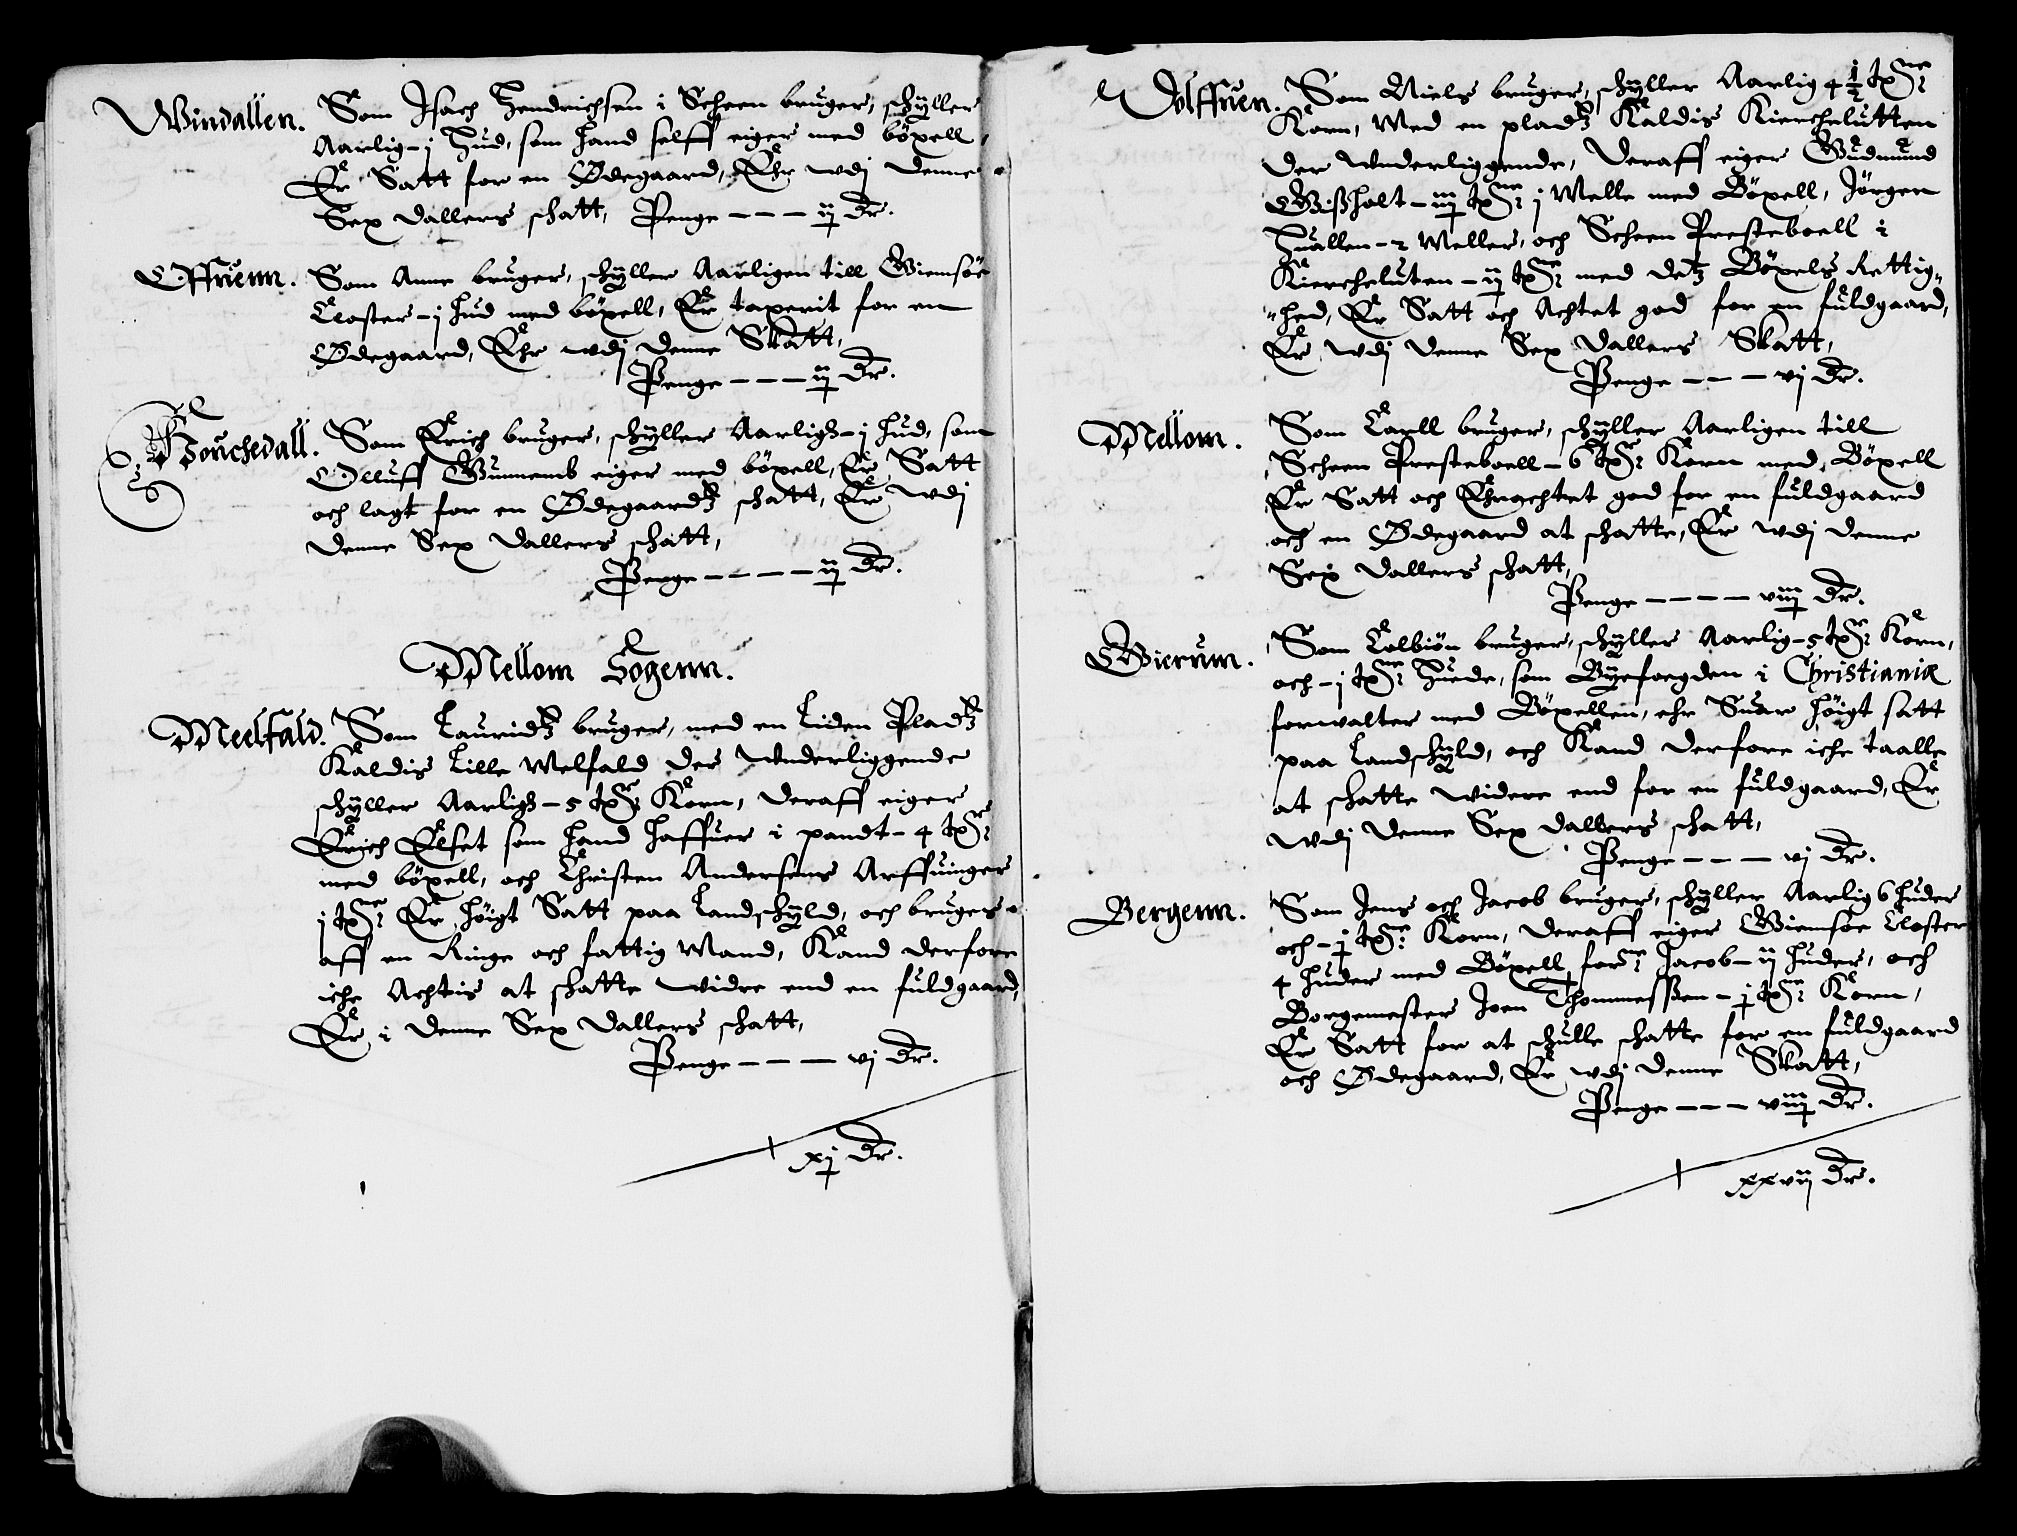 Windallen. Som Isach Hendrichsen i Scheen bruger, schÿller
Aarlig - j Hud, som hand selff eiger med böxell,
Er Satt for en Ødegaard, Ehr wdj denne
Sex dallers schatt, Penge - - - ij Dr.
Offuenn. Som Anne bruger, schÿller Aarligen till Giemsöe
Closter - j hud med böxell, Er taxerit for en
Ødegaard, Ehr wdj denne Skatt,
Penge - - - ij Dr.
Som Erich bruger, schÿller Aarligs - j hud, som
Olluff eiger med böxell, Er Satt
och lagt for en Ødegaardtz schatt, Er wdj
denne Sex dallers schatt,
Penge - - - - ij Dr.
Mellom Sogenn.
Meelfald. Som Lauridtz bruger, med en Liden Pladtz
Kaldis Lille Melfald der Wnderliggende
schÿller Aarligs - 5 tPr Korn, deraff eiger
Erich Elset som hand haffuer i pandt - 4 tPr
med böxell, och Christen Andersens Arffuinger
j tPr Er höigt Satt paa Landschÿld, och bruges
aff en Ringe och fattig Mand, Kand derfore
iche Achtis at schatte widre end en fuldgaard,
Er i denne Sex dallers schatt,
Penge - - - vj Dr.
xij Dr.
Som Niels bruger, schÿller Aarlig 4 1/2 tPr
Korn, Med en pladtz Kaldis Kiercheluten
der wnderliggende, deraff eiger Gudmund
Gisholt - iij tPr j Melle med Böxell, Jörgen
Huallen - 2 Meller, och Scheen Presteboell i
Kiercheluten - ij tPr med detz Böxels Rettig-
-hed, Er Satt och Achtet god for en fuldgaard,
Er wdj denne Sex dallers Skatt,
Penge - - - vj Dr.
Mellom. Som Carll bruger, schÿller Aarligen till
Scheen Presteboell - 6 tPr Korn med Böxell
Er Satt och Ehrachtet god for en fuldgaard
och en Ødegaard at schatte, Er wdj denne
Sex dallers schatt,
Penge - - - - viij Dr.
Gierum. Som Colbiön bruger, schÿller Aarlig - 5 tPr Korn,
och - j tPr Huede, som Bÿefoegden i Christiania
forwalter med Böxellen, ehr Suar höigt satt
paa Landschÿld, och Kand derfore iche taalle
at schatte widere end for en fuldgaard, Er
wdj denne Sex dallers schatt,
Penge - - - vj Dr.
Bergenn. Som Jens och Jacob bruger, schÿller Aarlig 6 huder
och - j tPr Korn, deraff eiger Giemsöe Closter
4 huder med Böxell, forne Jacob - ij huder, och
Borgemester Joen Thommessen - j tPr Korn,
Er Satt for at schulle schatte for en fuldgaard
och Ødegaard, Er wdj denne Skatt,
Penge - - - viij Dr.
xxvij Dr.